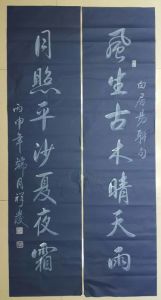 白居易聯句
風生古木晴天雨
月照平沙夏夜霜
丙申年端月祥發